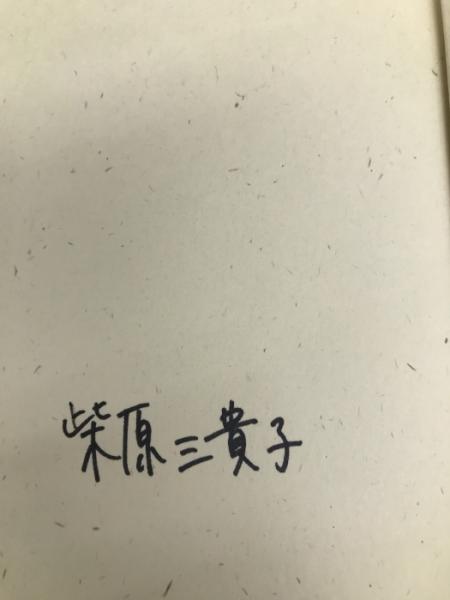 柴原三貴子